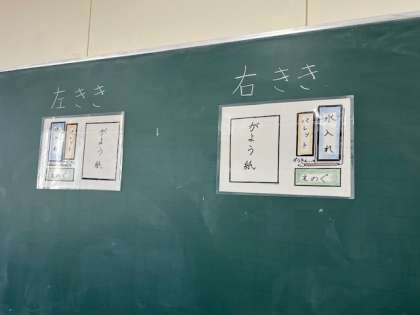 左きき
がよう紙
えのぐ
右きき
がよう紙
パレット
水入れ
えのぐ